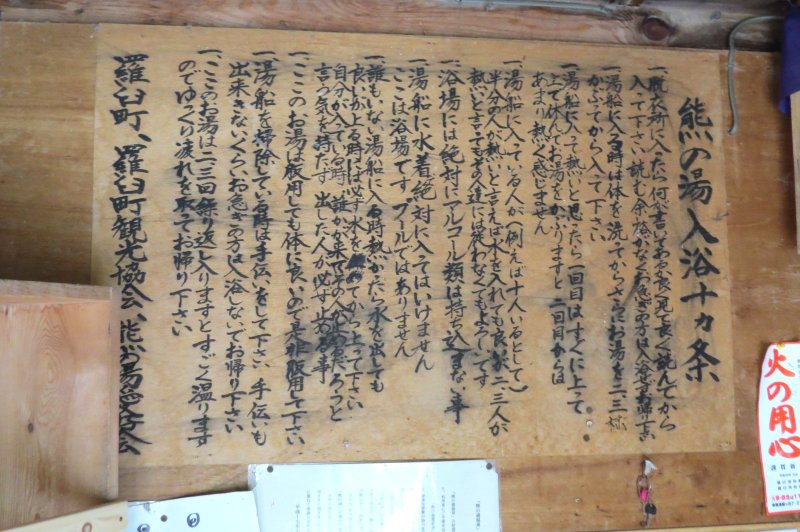 熊の湯入浴十カ条
一、脱衣所に入たら何が書いてあるか良く見て良く読んでから
入て下さい 読む余裕がなくお急ぎの方は入浴せずお帰り下さい
一、湯船に入る時は体を洗てからさらにお湯を二、三杯
かぶてから入て下さい
一、湯船に入って熱いと思ったら一回目はすぐに上って
上で休んでお湯をかぶりますと二回目からは
あまり熱く感じません
一、湯船に入ている人が(例えば十人いるとして)
半分の人が熱いと言えば水を入れても良いが二、三人が
熱いと言ってもその人達には従わなくてもよろしいです
一、浴場には絶対にアルコール類は持ち込まない事
一、湯船に水着絶対に入ってはいけません
ここは浴場です。プールではありません
一、誰もいない湯船に入る時熱かたら水を出しても
良いが上る時には必ず水を止めてから上って下さい
自分が入ている時、誰かが来てその人が止めるだろうと
言う気を持たず、出した人が必ず止める事
一、ここのお湯は服用しても体に良いので是非服用して下さい
一、湯船を掃除している時は手伝いをして下さい 手伝いも
出来きないくらいお急ぎの方は入浴しないでお帰り下さい
一、ここのお湯は二、三回繰り返し入りますとすごく温ります
のでゆっくり疲れを取ってお帰り下さい
羅臼町、羅臼町観光協会、熊の湯愛好会
火の用心